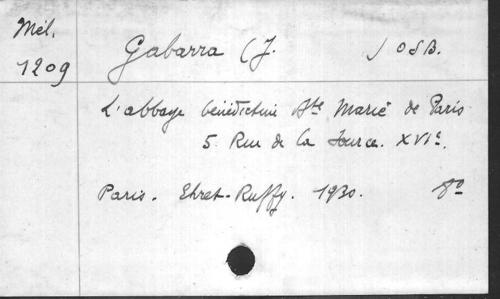 Mél.
1209
Gabarra (J. ) OSB.
L'abbaye bénédictine Ste Marie de Paris
5. Rue de la Source. XVIe.
Paris. Ehret-Ruffy. 1930. 8º